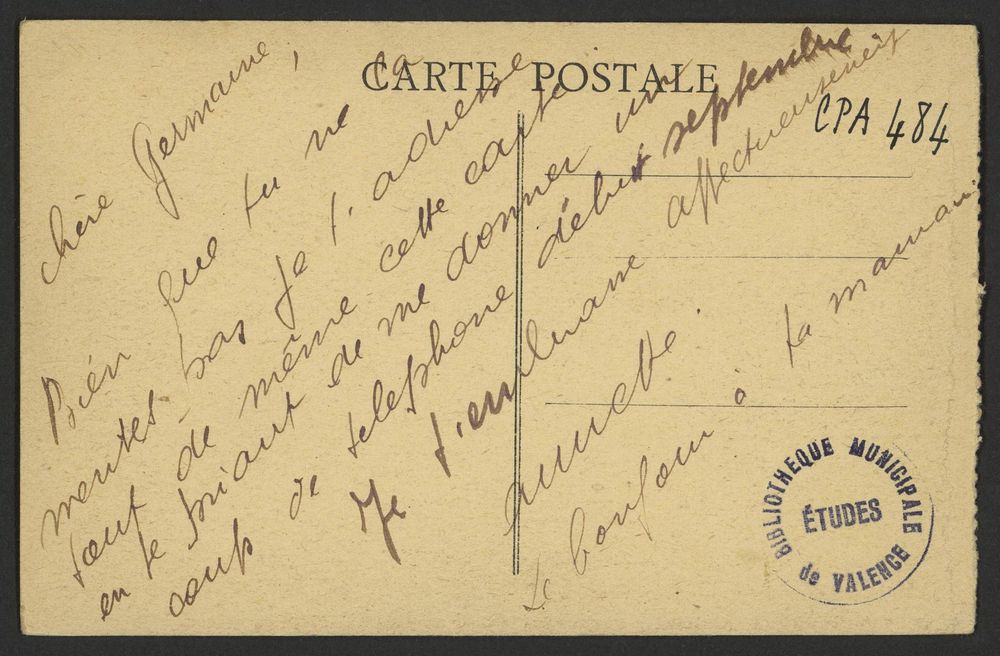 CARTE POSTALE
CPA 484
chère Germaine,
Bien que tu ne la
mentes pas je t'adresse
tout de même cette carte
en te priant de me donner un
coup de telephone début septembre
Je t'embrasse affectueusement
Le bonjour à ta maman
BIBLIOTHEQUE MUNICIPALE
ÉTUDES
de VALENCE